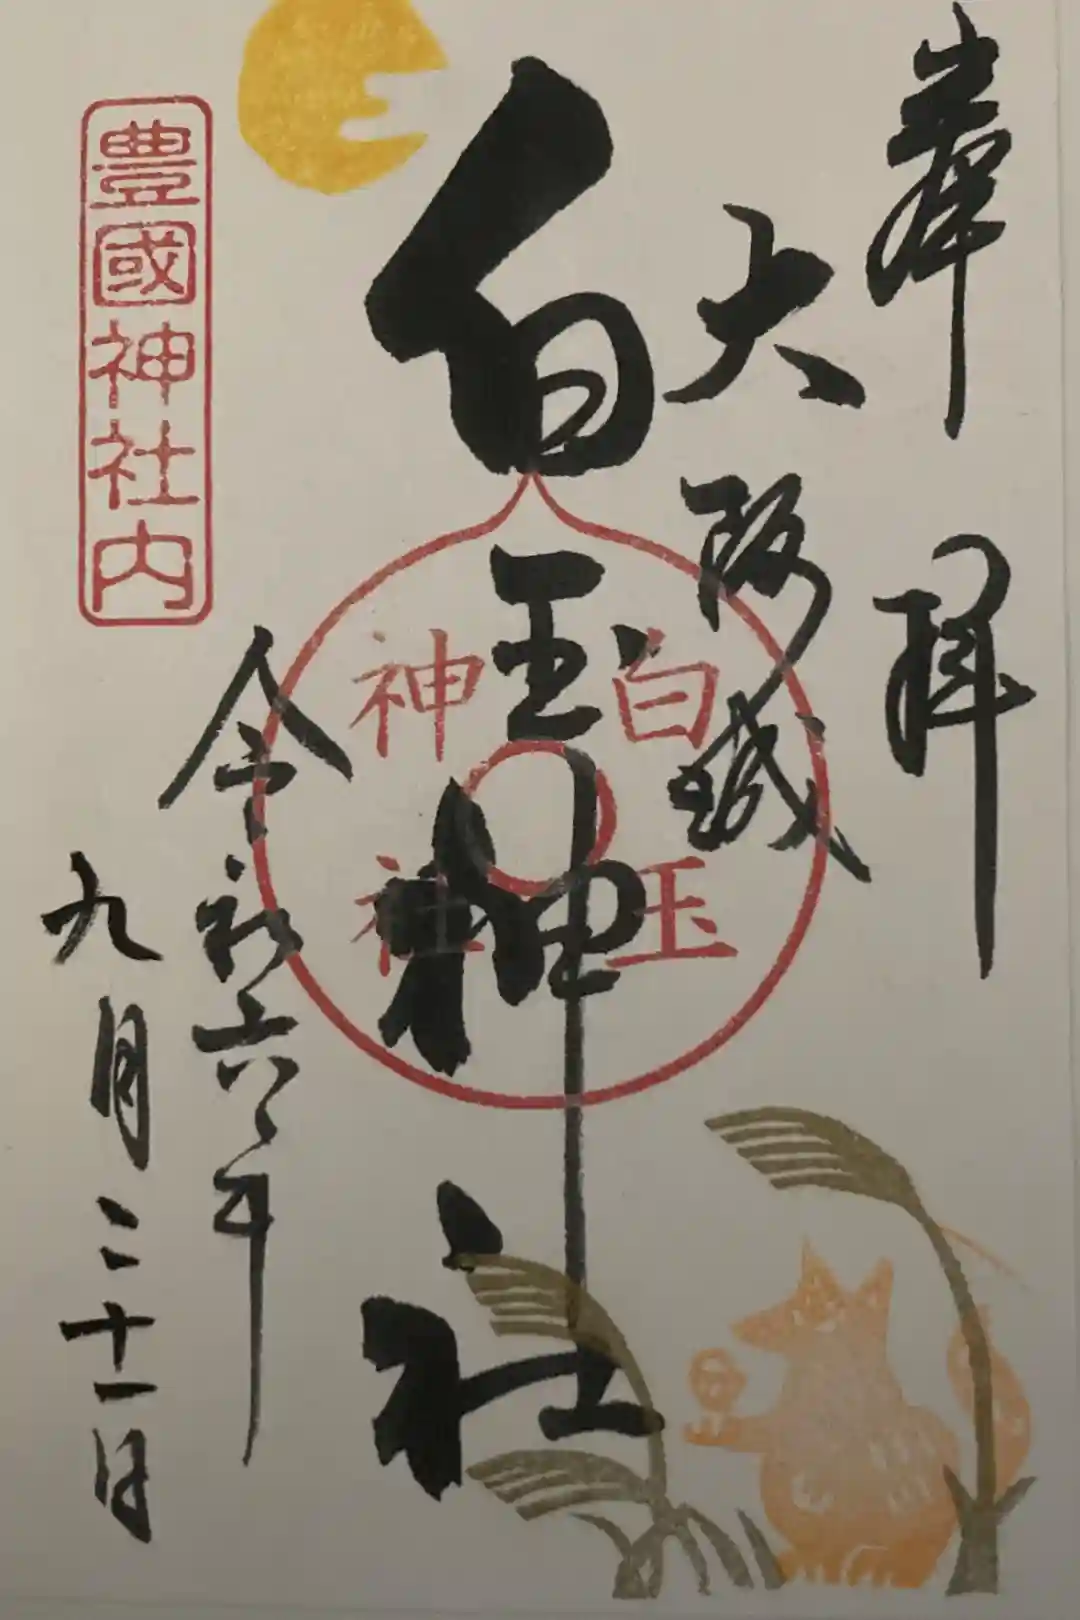 奉拝
大阪城
白玉神社
白玉
神社
令和六年
九月二十一日
豊國神社内